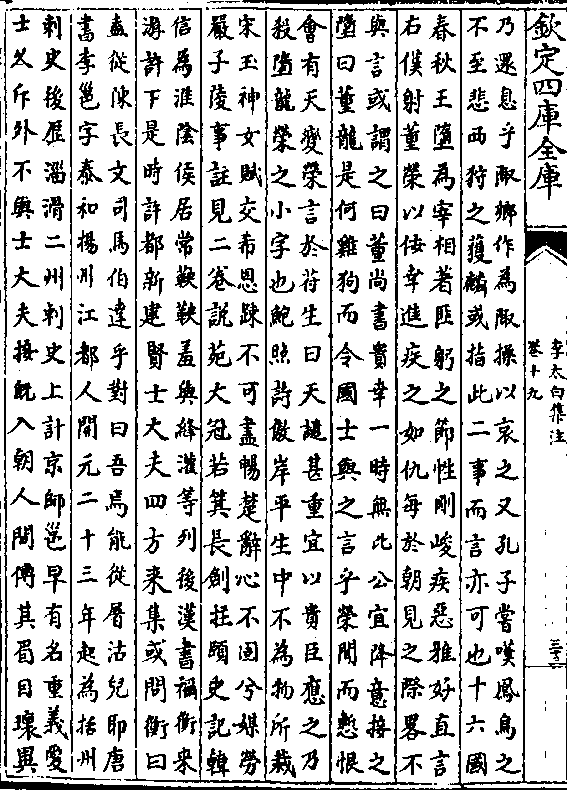 欽定四庫全書
李太白集注
卷十九
乃還息乎陬鄉作為陬操以哀之又孔子嘗嘆鳳鳥之
不至悲西狩之獲麟或指此二事而言亦可也十六國
春秋王墮為宰相著匪躬之節性剛峻疾惡雅好直言
右僕射董榮以佞幸進疾之如仇每於朝見之際畧不
與言或謂之曰董尚書貴幸一時無比公宜降意接之
墮曰董龍是何雞狗而令國士與之言乎榮聞而慙恨
會有天變榮言於苻生曰天譴甚重宜以貴臣應之乃
殺墮龍榮之小字也鮑照詩傲岸平生中不為物所裁
宋玉神女賦交希恩踈不可盡暢楚辭心不同兮媒勞
嚴子陵事註見二卷說苑大冠若箕長劍拄頤史記韓
信為淮陰侯居常鞅鞅羞與絳灌等列後漢書禰衡來
游許下是時許都新建賢士大夫四方來集或問衡曰
盍從陳長文司馬伯達乎對曰吾焉能從屠沽兒耶唐
書李邕字泰和揚州江都人開元二十三年起為括州
刺史後歷淄滑二州刺史上計京師邕早有名重義愛
士久斥外不與士大夫接既入朝人間傳其眉目瓌異